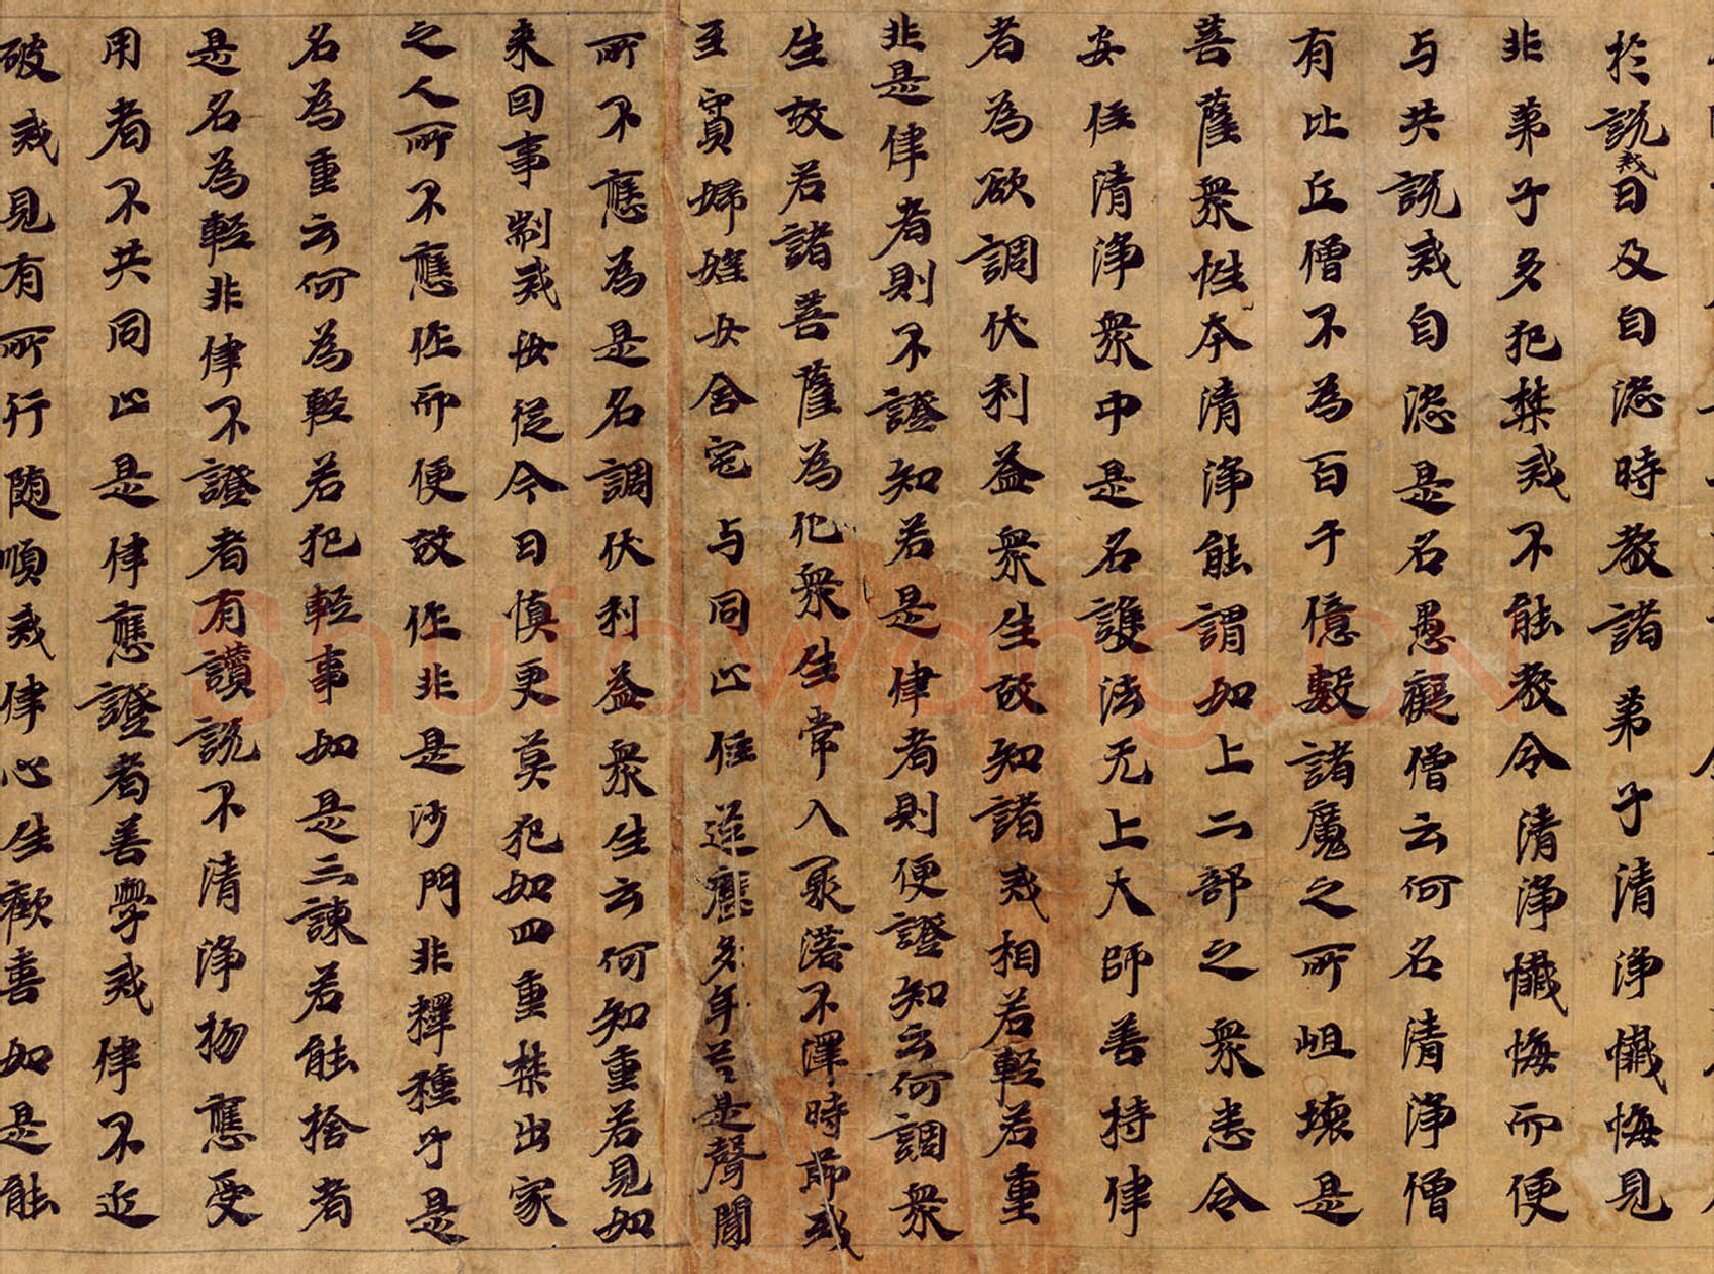 於説戒日及自恣時教諸弟子清淨懺悔見
非弟子多犯禁戒不能教令清淨懺悔而便
与共説戒自恣是名愚癡僧云何名清淨僧
有比丘僧不為百千億數諸魔之所岨壞是
菩薩衆性本清淨能謂如上二部之衆悉令
安住清淨衆中是名護法无上大師善持律
者為欲調伏利益衆生故知諸戒相若輕若重
非是律者則不證知若是律者則便證知云何調衆
生故若諸菩薩為化衆生常入聚落不擇時節或
至寡婦婬女舍宅与同止住逕歷多年若是聲聞
所不應為是名調伏利益衆生云何知重若見如
来因事制戒汝從今日慎更莫犯如四重禁出家
之人所不應作而便故作非是沙門非釋種子是
名為重云何為輕若犯輕事如是三諫若能捨者
是名為輕非律不證者有讚説不清淨物應受
用者不共同止是律應證者善學戒律不近
破戒見有所行随順戒律心生歡喜如是能
Shufawang.CN